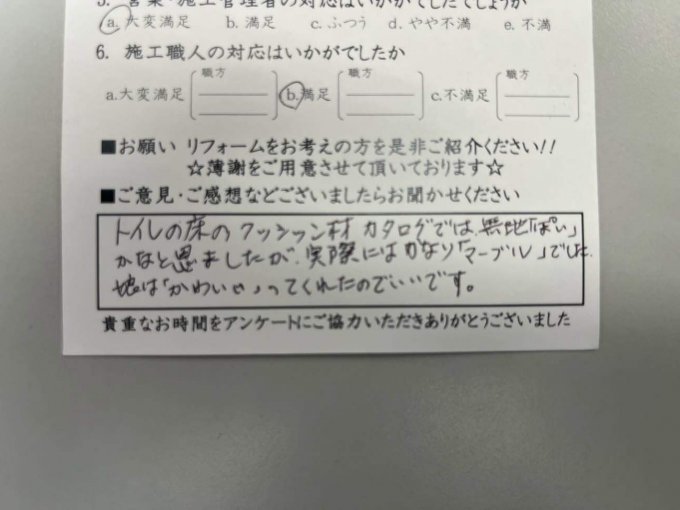 5. 営業・施工管理者の対応はいかがでしたでしょうか
a.大変満足 b.満足 c.ふつう d.やや不満 e.不満
6. 施工職人の対応はいかがでしたか
a.大変満足 職方 b.満足 職方 c.不満足 職方
■お願い リフォームをお考えの方を是非ご紹介ください!!
☆薄謝をご用意させて頂いております☆
■ご意見・ご感想などございましたらお聞かせください
トイレの床のクッション材 カタログでは、無地「ぽい」
かなと思ましたが、実際にはかなり「マーブル」でした。
娘は「かわいい」ってくれたのでいいです。
貴重なお時間をアンケートにご協力いただきありがとうございました